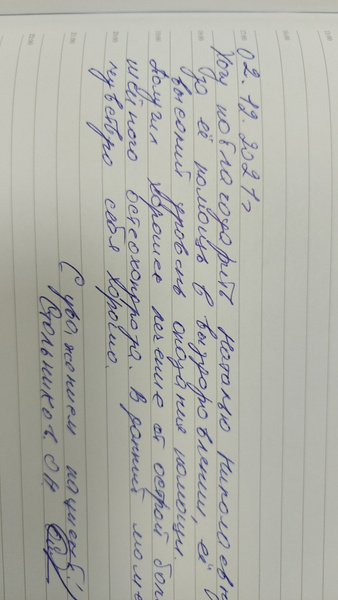 02.12.2021г
Хочу поблагодарить Наталью Николаевну
За её помощь в выздоровлении, её
высокий уровень оказания помощи.
Получил хорошее лечение от острой бол
шейного остеохондроза. В данный моме
чувствую себя хорошо.
С уважением пациент
Стольников ОН